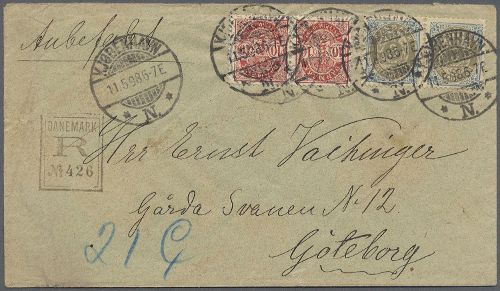 Anbefalet
KJØBENHAVN
11.5.98.6-7E
N.
KJØBENHAVN
N.
DANEMARK
R
No 426
Herr Ernst Vaihinger
Gårda Svanen No 12
Göteborg
219